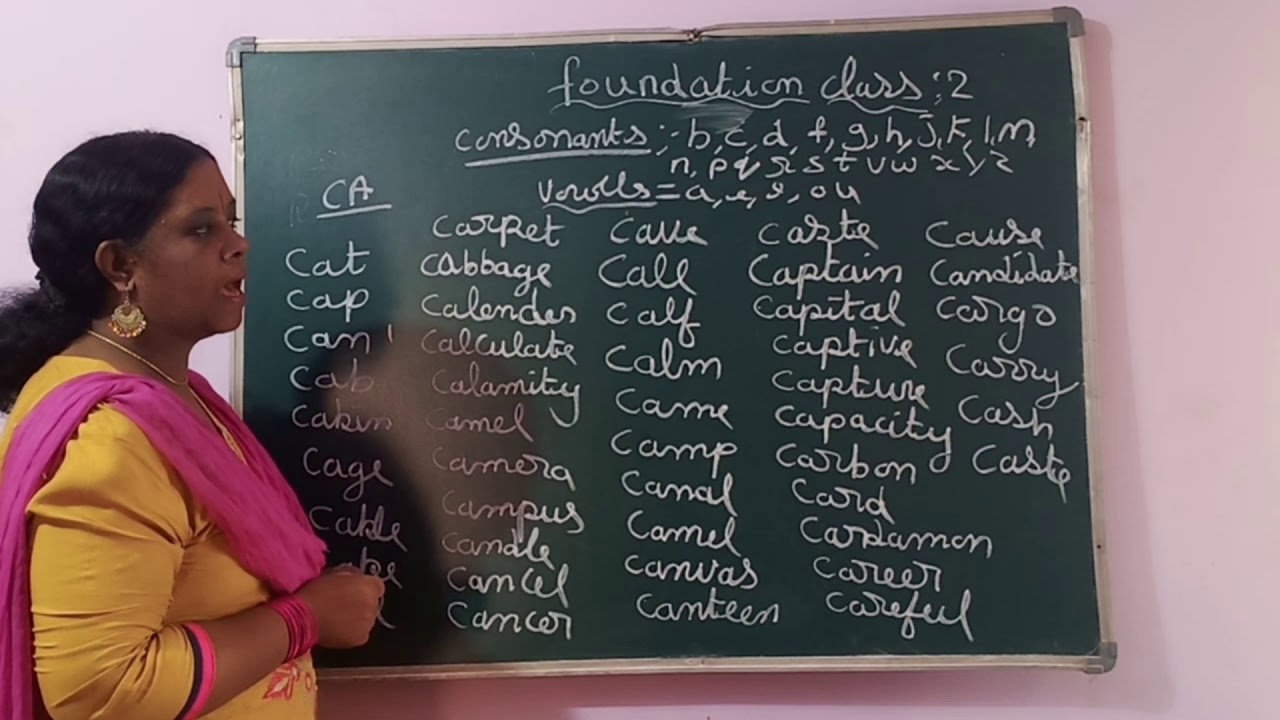 foundation class:2
consonants:- b, c, d, f, g, h, j, k, l, m,
n, p q r s t v w x y z
Vowlls = a, e, i, o u
CA
Cat
Cap
Can
Cab
Cabin
Cage
Cable
Carpet
Cabbage
Calender
Calculate
Calamity
Camel
Camera
Campus
Candle
Cancel
Cancer
Call
Calf
Calm
Came
Camp
Canal
Camel
Canvas
Canteen
Caste
Captain
Capital
Captive
Capture
Capacity
Carbon
Card
Cardamon
Career
Careful
Cause
Candidate
Cargo
Carry
Cash
Caste